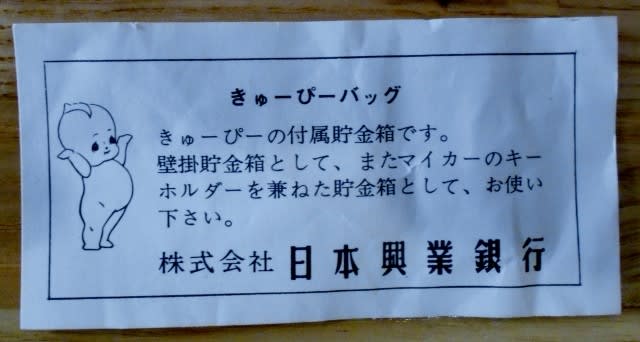 きゅーぴーバッグ
きゅーぴーの付属貯金箱です。
壁掛貯金箱として、またマイカーのキー
ホルダーを兼ねた貯金箱として、お使い
下さい。
株式会社 日本興業銀行